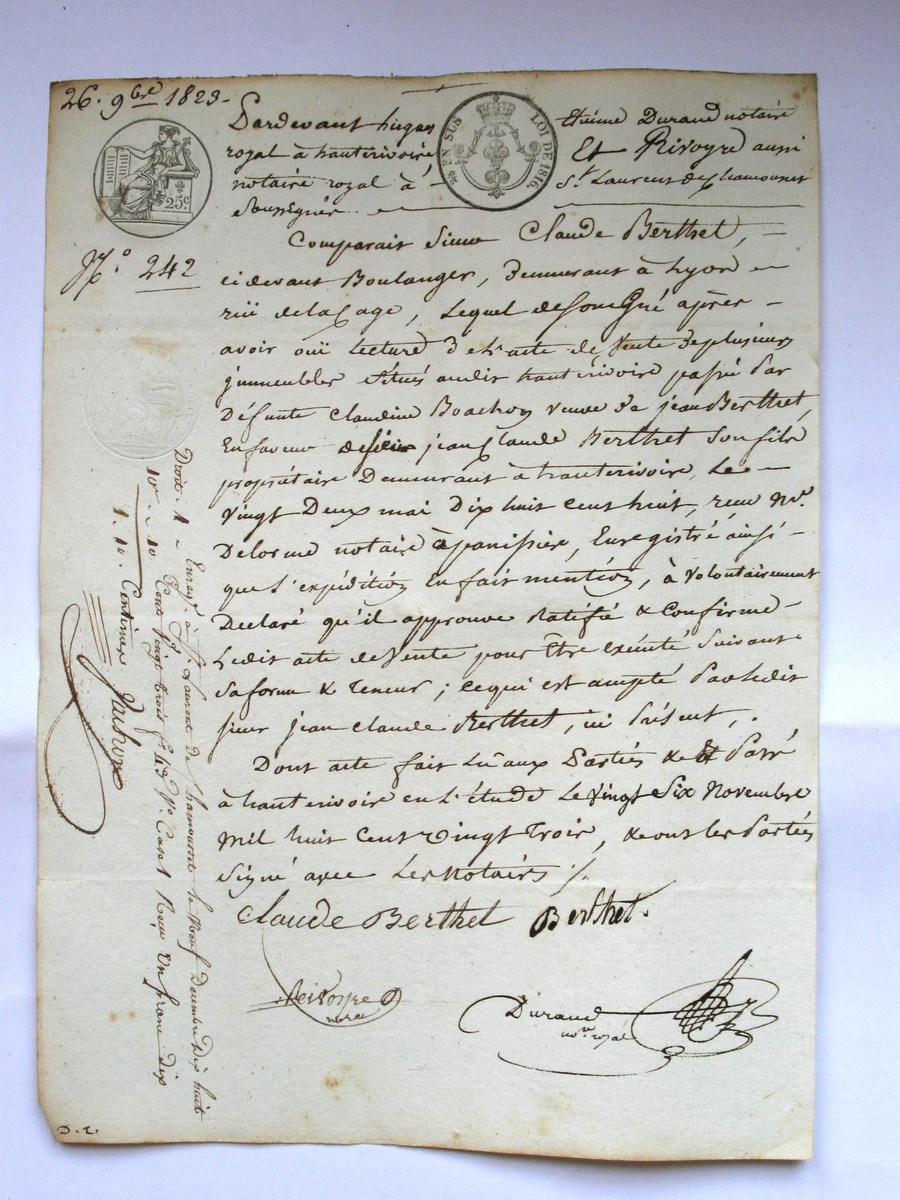 26. 9bre 1823-
25c
EN SUS
LOI DE 1816.
No 242
Pardevant hugues Etiénne Durand notaire
royal à hauterivoire Et Rivoyre aussi
notaire royal à St Laurent de Chamousset
Soussignés
Comparait Sieur Claude Berthet,
cidevant Boulanger, Demeurant à Lyon
rüe delacage, Lequel après
avoir oüi Lecture De L'acte de Vente Deplusieurs
jmmeubles Situés audit hauterivoire passé Par
Défunte Claudine Boachon veuve De jean Berthet,
En faveur jean Claude Berthet Son fils
propriétaire Demeurant à hauterivoire, Le
Vingt Deux mai Dix huit cent huit, recu Me.
Delorme notaire àpanissière, Enregistré ainsi
que L'expédition En fait mention, à Volontairement
Declaré qu'il approuve Ratifié & Confirme
Ledit acte deVente pour Être exécuté Suivant
Saforme & Teneur; cequi est accepté Par Ledit
Sieur jean Claude Berthet, ici Présent,.
Dont acte fait Lû aux Parties & Passé
à hauterivoire en L'étude Le Vingt Six Novembre
Mil huit Cent Vingt Trois, & ont les Parties
Signé avec Les Notaires ./.
Claude Berthet Berthet.
Rivoyre
nore
Durand
nore royal
Enregé. à St. Laurent de Chamousset le Neuf Decembre Dix huit
Cent Vingt trois fo 43 Vo Case 1 Reçu Un franc dix
Centimes
Droit. 1 "
10e " 10
1. 10.
D. r.